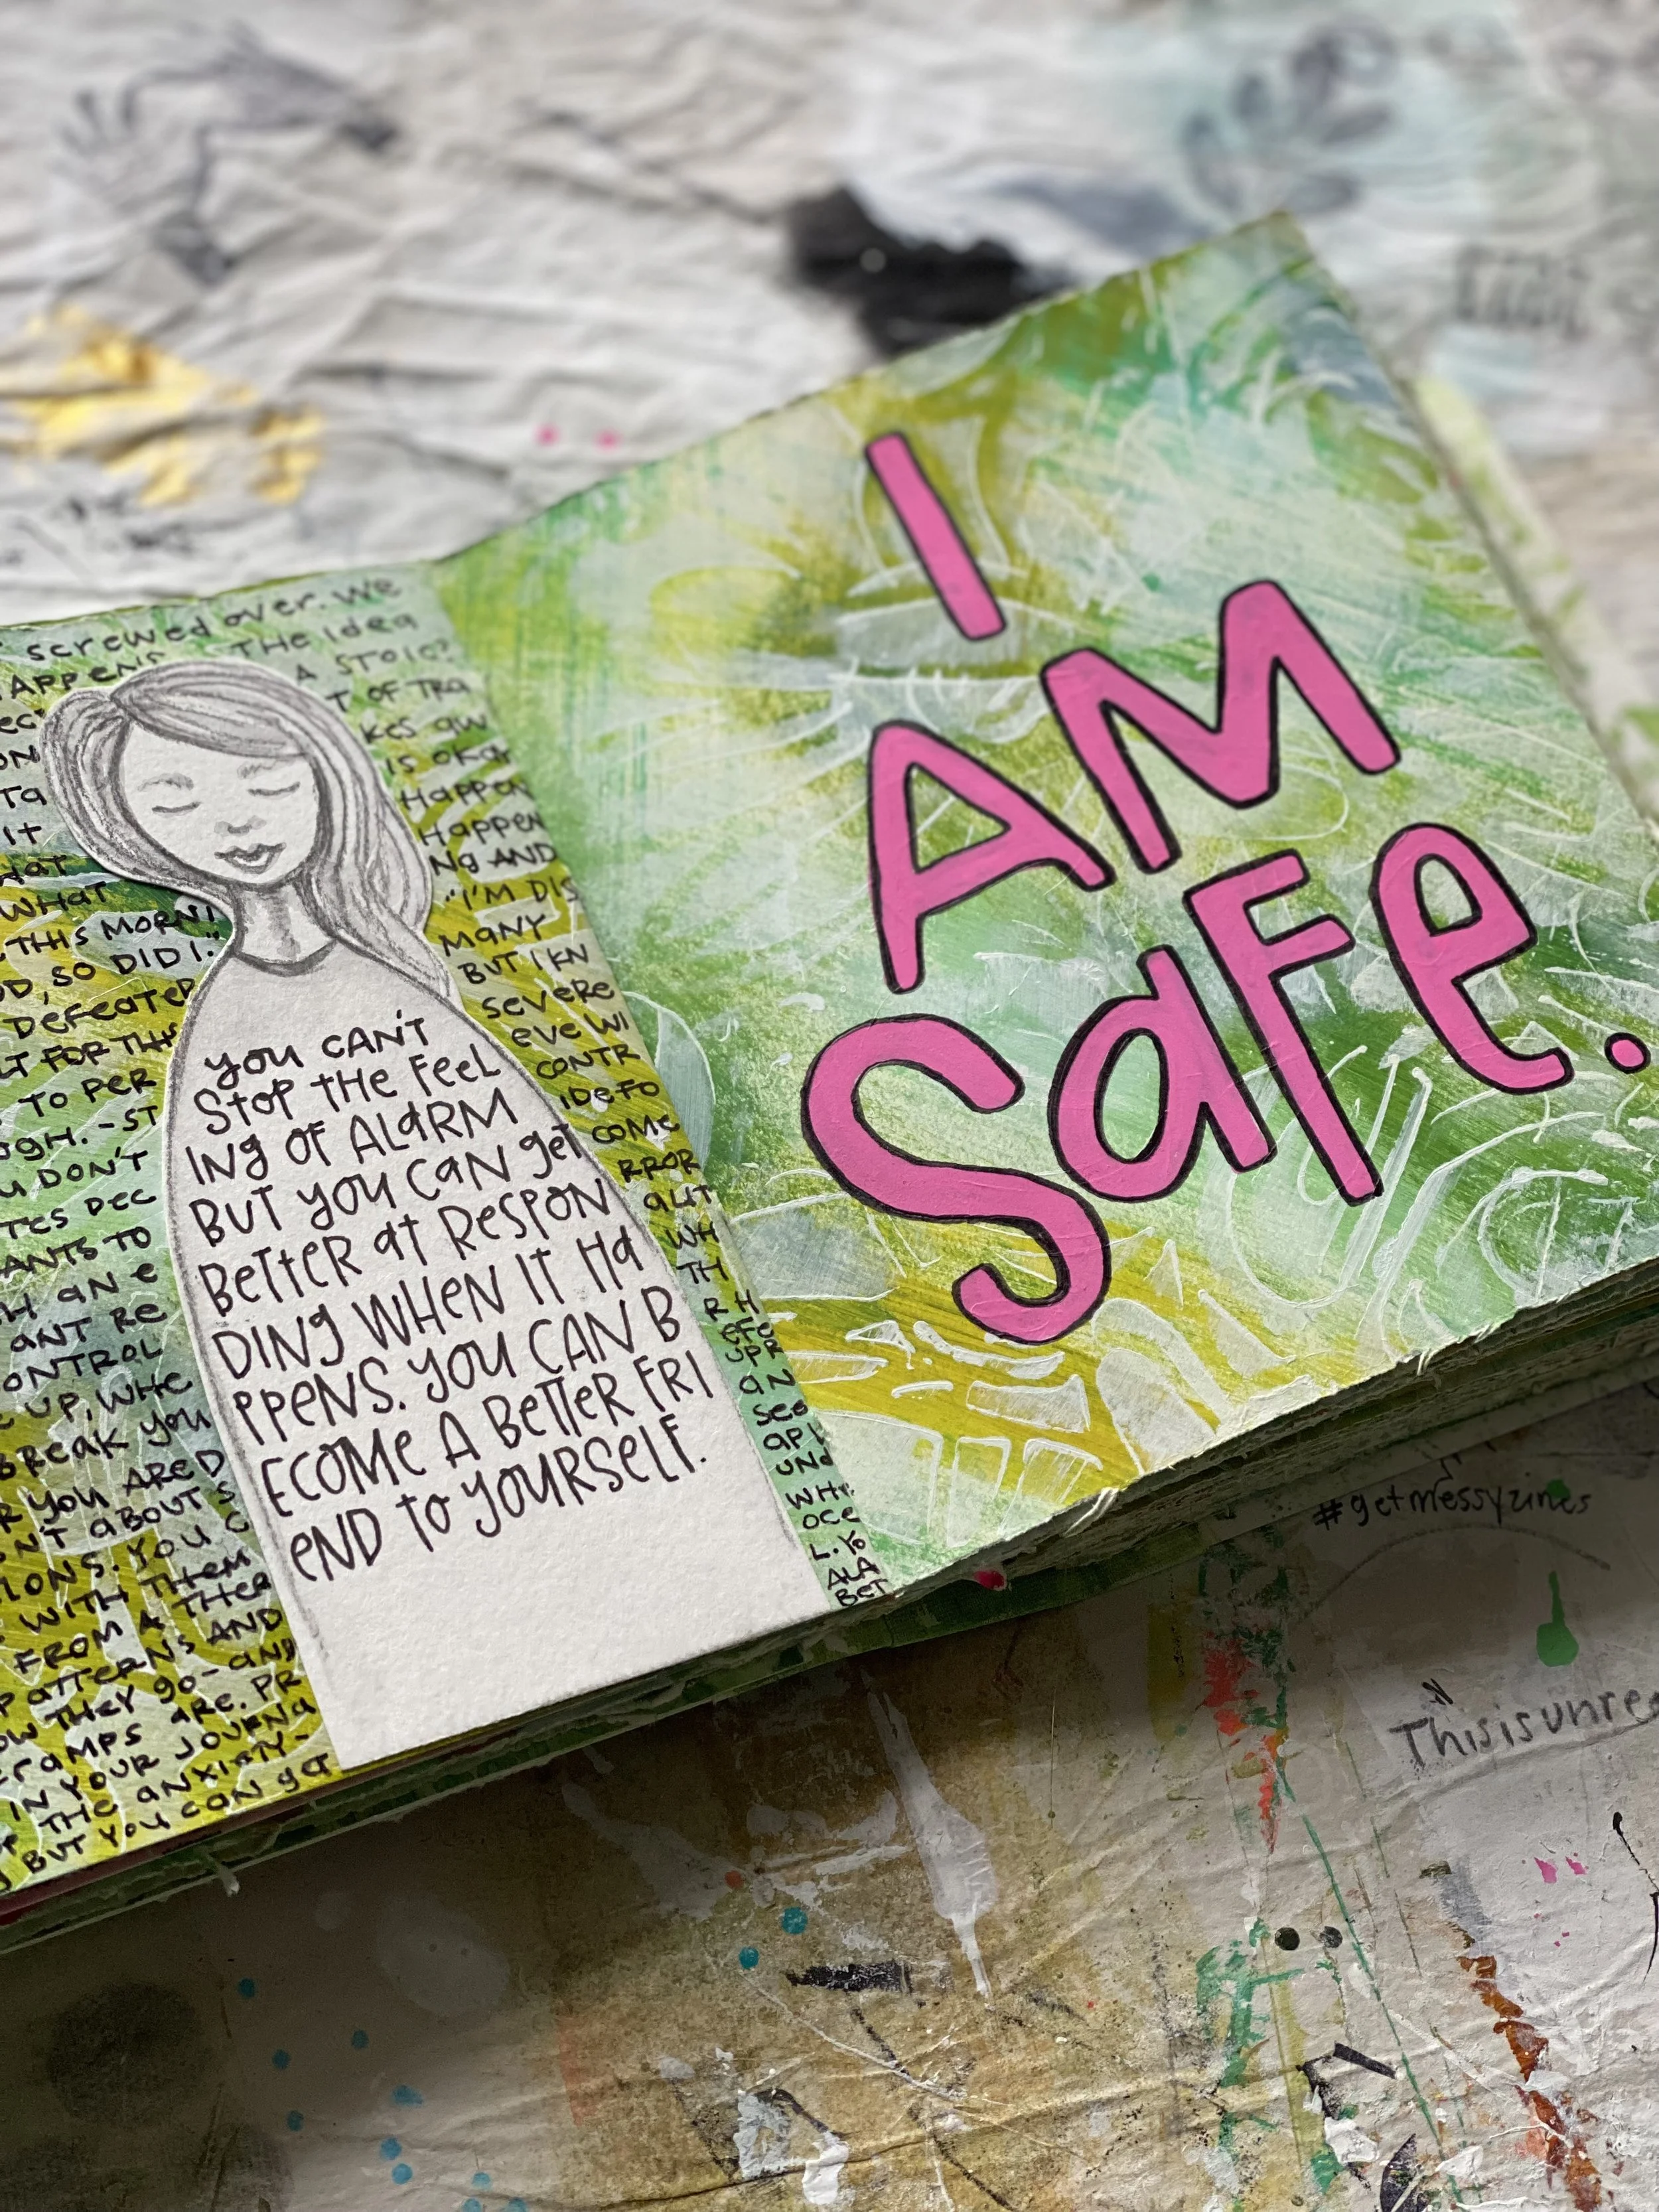 screwed over. we
APPENS THE IDEA
A STOIC?
T OF TRA
kes aw
ON IS OKAY
Ta HAPPEN
IT HAPPEN
HAT NG AND
WHAT "I'M DIS
THIS MORNI MANY
OD, SO DID I." BUT I KN
DEFEATED SEVERE
LT FOR THIS EVE WI
TO PER CONTR
UGH. - ST IDEFO
U DON'T COME
TES DEC RROR
ANTS TO AUT
H AN E WH
ANT RE TH
ONTROL R H
E UP, WHE EFE
BREAK YOU UPR
R YOU ARE D AN
ON'T ABOUT S SEE
IONS. YOU C APL
WITH THEM UND
FROM A THER WHE
PATTERNS AND OCE
OW THEY GO - AND L. YO
CRAMPS ARE. PR ALA
IN YOUR JOURNA BET
OP THE ANXIETY -
BUT YOU CAN GET
YOU CAN'T
STOP THE FEEL
ING OF ALARM
BUT YOU CAN GET
BETTER AT RESPON
DING WHEN IT HA
PPENS. YOU CAN B
ECOME A BETTER FRI
END TO YOURSELF.
I
AM
SAFE.
#getmessyzines
This is unre